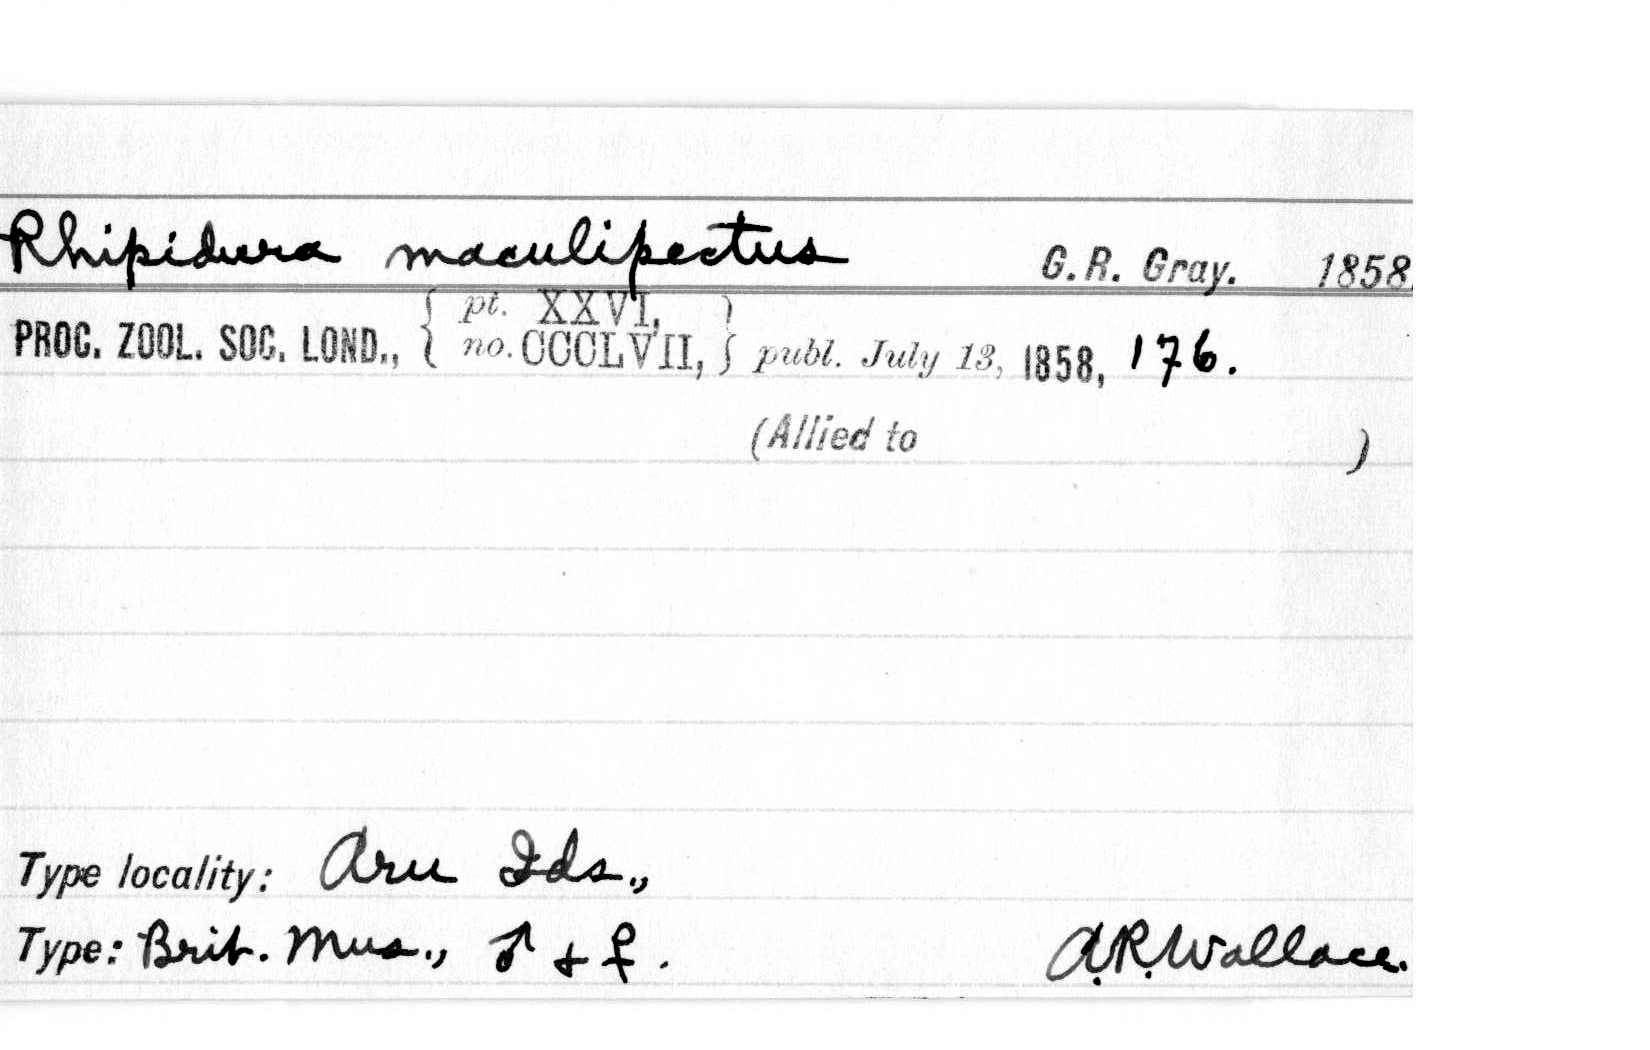 Rhipidura maculipectus G.R. Gray. 1858.
PROC. ZOOL. SOC. LOND., { pt. XXVI, no. CCCLVII, } publ. July 13, 1858, 176.
(Allied to )
Type locality: Aru Ids.,
Type: Brit. Mus., ♂ + ♀. A.R. Wallace.